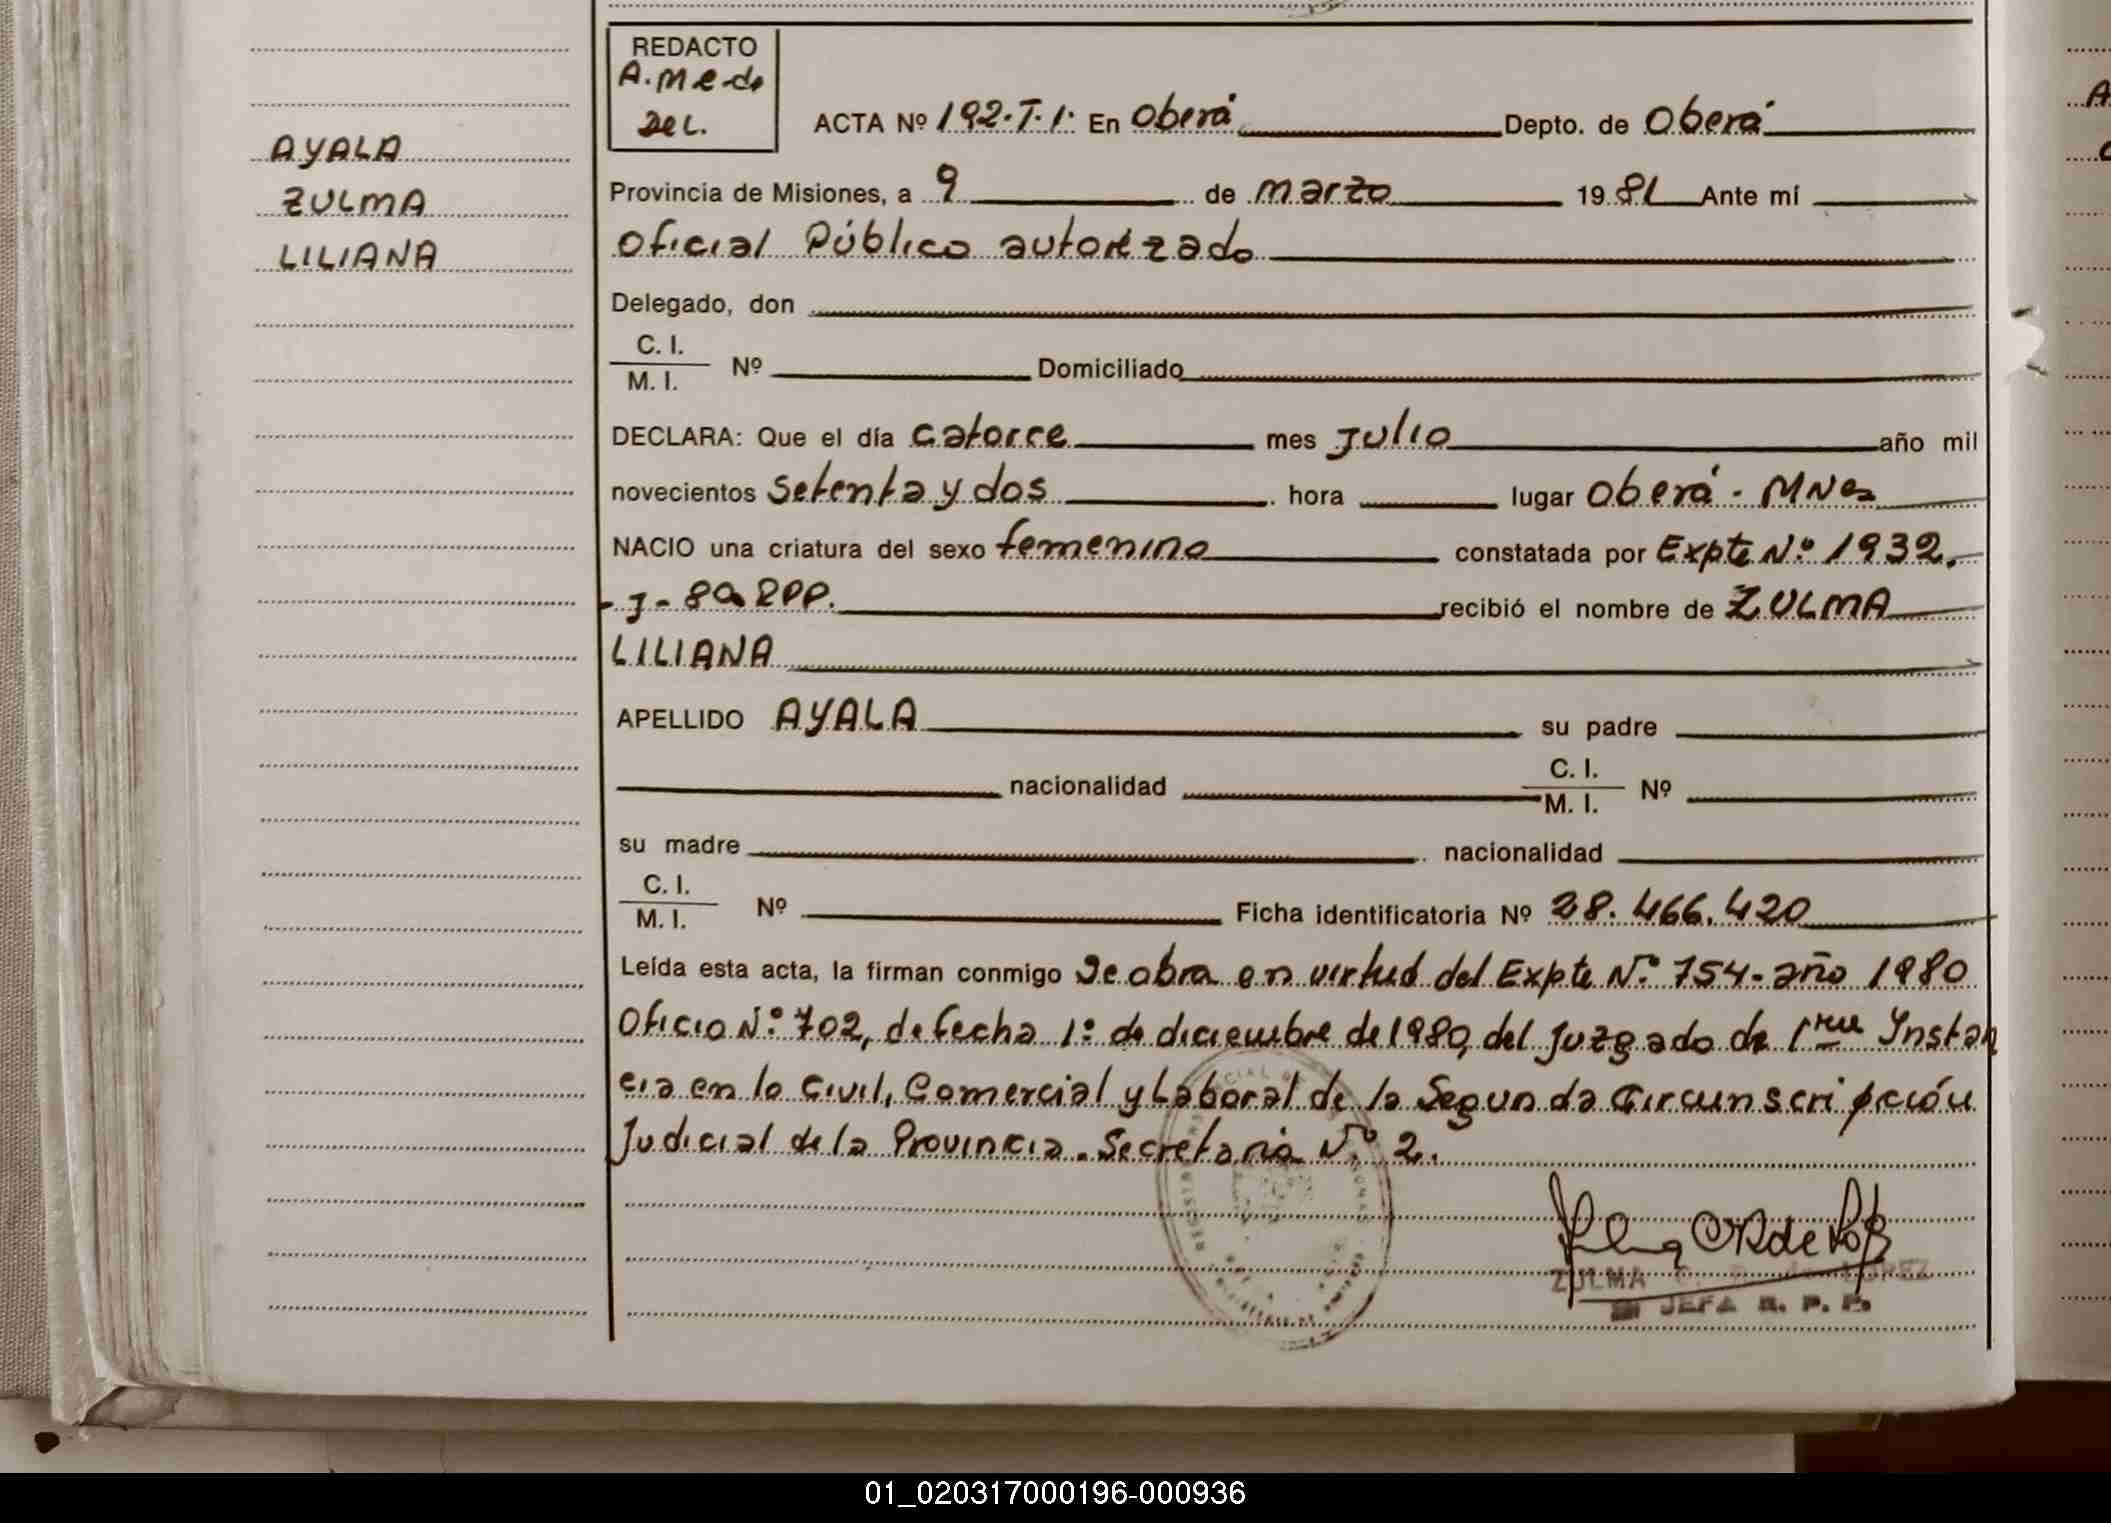 REDACTO
A. M e do
Del.
ACTA Nº 192. T. 1. En Oberá Depto. de Oberá
AYALA
ZULMA
LILIANA
Provincia de Misiones, a 9 de marzo 1981 Ante mí
Oficial Público autorizado
Delegado, don
C. I.
M. I. Nº Domiciliado
DECLARA: Que el día catorce mes Julio año mil
novecientos setenta y dos hora lugar Oberá - MNes
NACIO una criatura del sexo femenino constatada por Expte Nº 1932.
- J - 80 RPP. recibió el nombre de ZULMA
LILIANA
APELLIDO AYALA su padre
nacionalidad C. I. M. I. Nº
su madre nacionalidad
C. I.
M. I. Nº Ficha identificatoria Nº 28.466.420
Leída esta acta, la firman conmigo Se obra en virtud del Expte Nº 754 - año 1980
Oficio Nº 702, de fecha 1º de diciembre de 1980, del Juzgado de 1ra Ynstan
cia en lo Civil, Comercial y Laboral de la Segunda Circunscripción
Judicial de la Provincia. Secretaria Nº 2.
ZULMA LOPEZ
JEFA R. P. P.
01_020317000196-000936